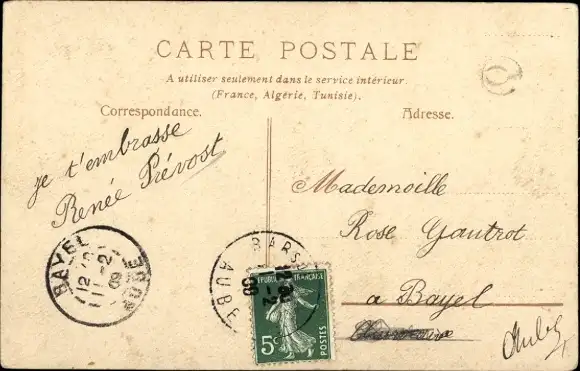 CARTE POSTALE
A utiliser seulement dans le service intérieur.
(France, Algérie, Tunisie).
Correspondance.
Adresse.
je t'embrasse
Renée Prévost
Mademoiselle
Rose Gautrot
a Bayel
Aube
BAYEL
11-2
09
AUBE
BARS
AUBE
FRANÇAISE
5c
POSTES